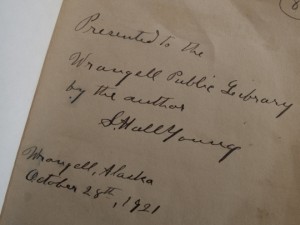 Presented to the
Wrangell Public Library
by the author
S. Hall Young
Wrangell, Alaska
October 28th, 1921